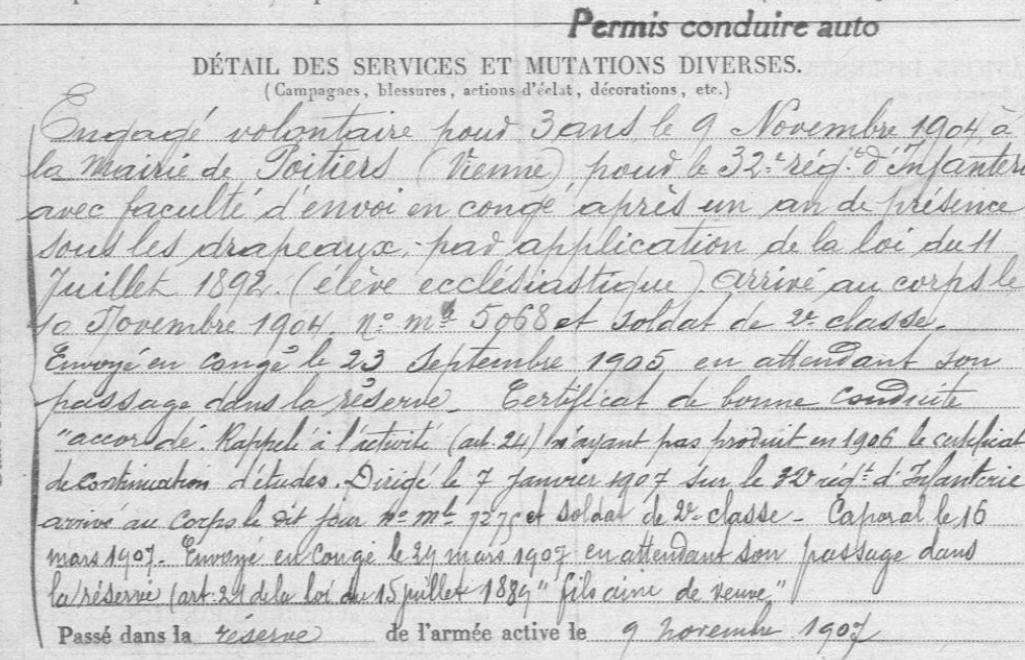 Permis conduire auto
DÉTAIL DES SERVICES ET MUTATIONS DIVERSES.
(Campagnes, blessures, actions d'éclat, décorations, etc.)
Engagé volontaire pour 3 ans, le 9 Novembre 1904 à
la Mairie de Poitiers (Vienne) pour le 32e régt d'Infanterie
avec faculté d'envoi en congé après un an de présence
sous les drapeaux, par application de la loi du 11
Juillet 1892. (élève ecclésiastique). Arrivé au corps le
10 Novembre 1904, no mle 5068 et soldat de 2e classe.
Envoyé en congé le 23 Septembre 1905 en attendant son
passage dans la réserve. Certificat de bonne conduite
"accordé. Rappelé à l'activité (art. 24) n'ayant pas produit en 1906 le certificat
de continuation d'études. Dirigé le 7 Janvier 1907 sur le 32e régt d'Infanterie
arrivé au Corps le dit jour no mle 7275 et soldat de 2e classe - Caporal le 16
mars 1907. Envoyé en Congé le 29 mars 1907 en attendant son passage dans
la réserve (art. 21 de la loi du 15 juillet 1889 "fils aîné de veuve"
Passé dans la réserve de l'armée active le 9 novembre 1907